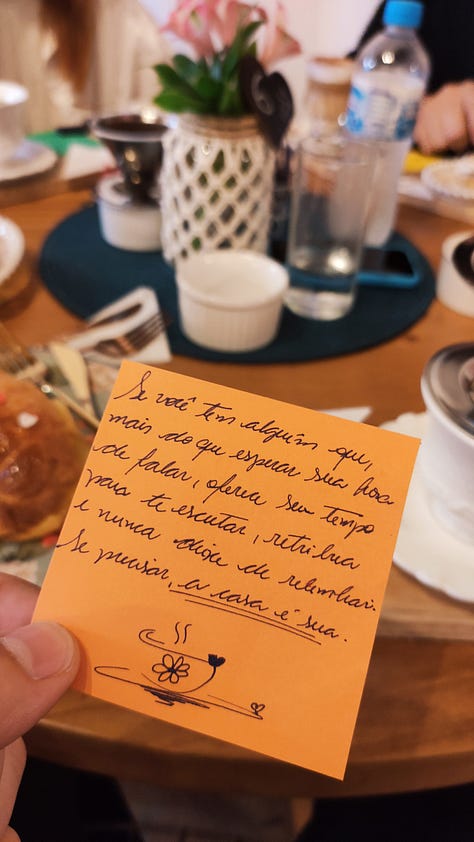 Se você tem alguém que,
mais do que esperar sua hora
de falar, oferece seu tempo
para te escutar, retribua
e nunca deixe de relembrar.
Se precisar, a casa é sua.